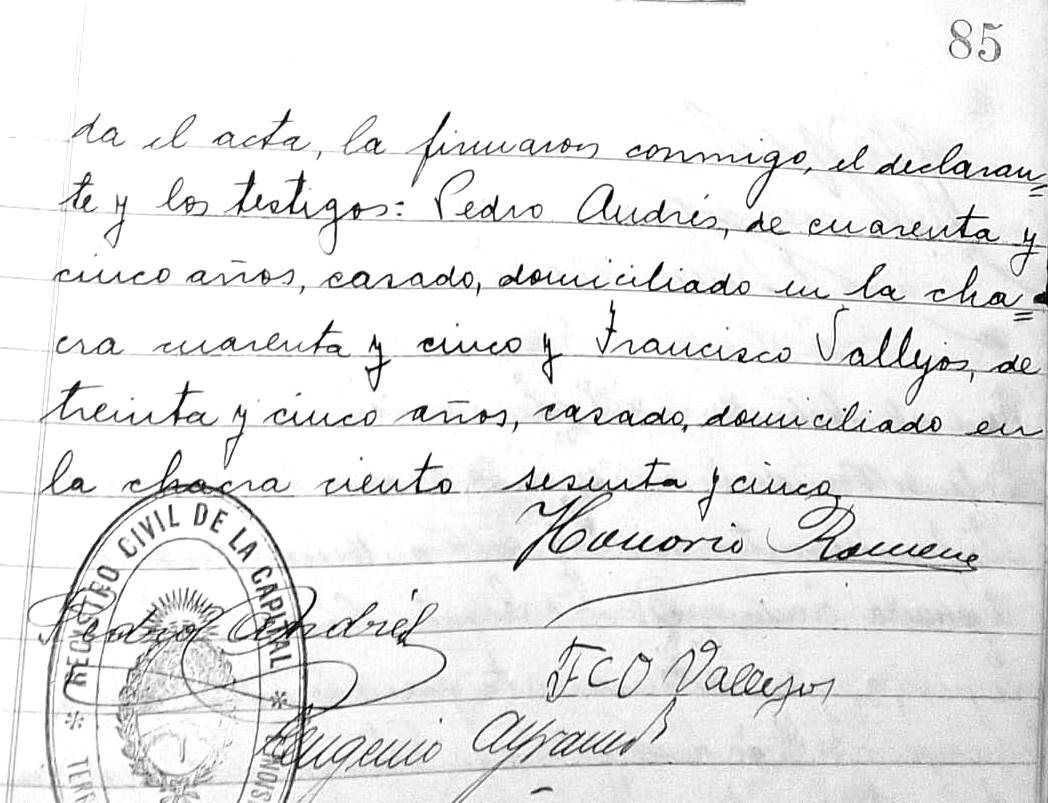 85
da el acta, la firmaron conmigo, el declaran=
te y los testigos: Pedro Andrés, de cuarenta y
cinco años, casado, domiciliado en la cha=
cra cuarenta y cinco y Francisco Vallejos, de
treinta y cinco años, casado, domiciliado en
la chacra ciento sesenta y cinco
Honorio
REGISTRO CIVIL DE LA CAPITAL
Pedro Andrés
FCO Vallejos
Eugenio